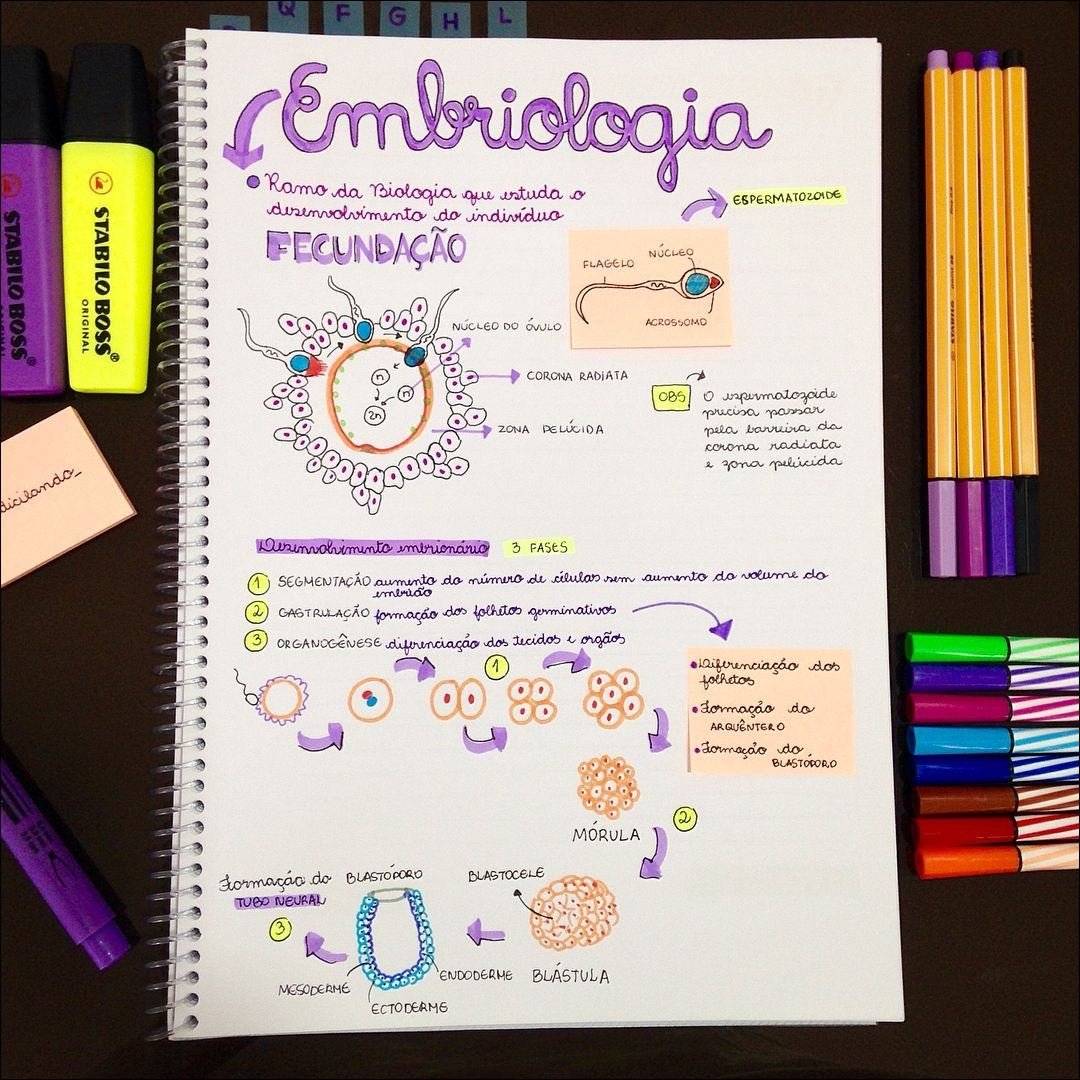 Q F G H L
STABILO BOSS
STABILO BOSS
ORIGINAL
Embriologia
Ramo da Biologia que estuda o
desenvolvimento do indivíduo
ESPERMATOZOIDE
FECUNDAÇÃO
FLAGELO
NÚCLEO
ACROSSOMO
NÚCLEO DO ÓVULO
CORONA RADIATA
ZONA PELÚCIDA
n
n
2n
OBS
O espermatozoide
precisa passar
pela barreira da
corona radiata
e zona pelúcida
Desenvolvimento embrionário 3 FASES
1 SEGMENTAÇÃO aumento do número de células sem aumento do volume do
embrião
2 GASTRULAÇÃO formação dos folhetos germinativos
3 ORGANOGÊNESE diferenciação dos tecidos e orgãos
1
Diferenciação dos
folhetos
Formação do
ARQUÊNTERO
Formação do
BLASTÓPORO
MÓRULA
2
Formação do
TUBO NEURAL
3
BLASTÓPORO
BLASTOCELE
MESODERME
ECTODERME
ENDODERME
BLÁSTULA